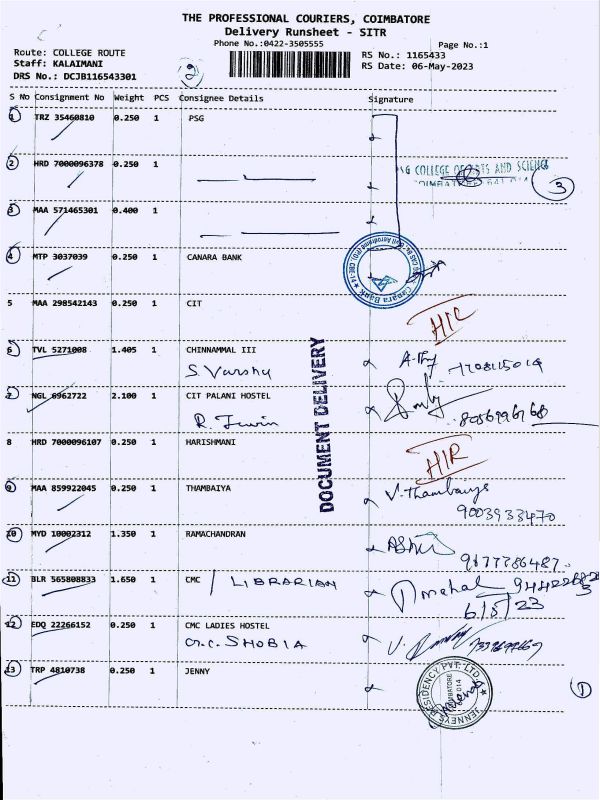 THE PROFESSIONAL COURIERS, COIMBATORE
Delivery Runsheet - SITR
Phone No.:0422-3505555
Page No.:1
Route: COLLEGE ROUTE
Staff: KALAIMANI
DRS No.: DCJB116543301
2
RS No.: 1165433
RS Date: 06-May-2023
S No Consignment No Weight PCS Consignee Details Signature
1 TRZ 35460810 0.250 1 PSG
2 HRD 7000096378 0.250 1
COLLEGE OF ARTS AND SCIENCE
3
3 MAA 571465301 0.400 1
4 MTP 3037039 0.250 1 CANARA BANK
Canara Bank
5 MAA 298542143 0.250 1 CIT
HIC
6 TVL 5271008 1.405 1 CHINNAMMAL III
S. Varshy
7 NGL 6962722 2.100 1 CIT PALANI HOSTEL
R. Jewin
8 HRD 7000096107 0.250 1 HARISHMANI
HIR
DOCUMENT DELIVERY
9 MAA 859922045 0.250 1 THAMBAIYA
V. Thambaiya
9003933470
10 MYD 10002312 1.350 1 RAMACHANDRAN
9677786487
11 BLR 565808833 1.650 1 CMC / LIBRARIAN
6/5/23
12 EDQ 22266152 0.250 1 CMC LADIES HOSTEL
SHOBIA
13 TRP 4810738 0.250 1 JENNY
JENNEYS RESIDENCY PVT. LTD.
COIMBATORE
641 014
1